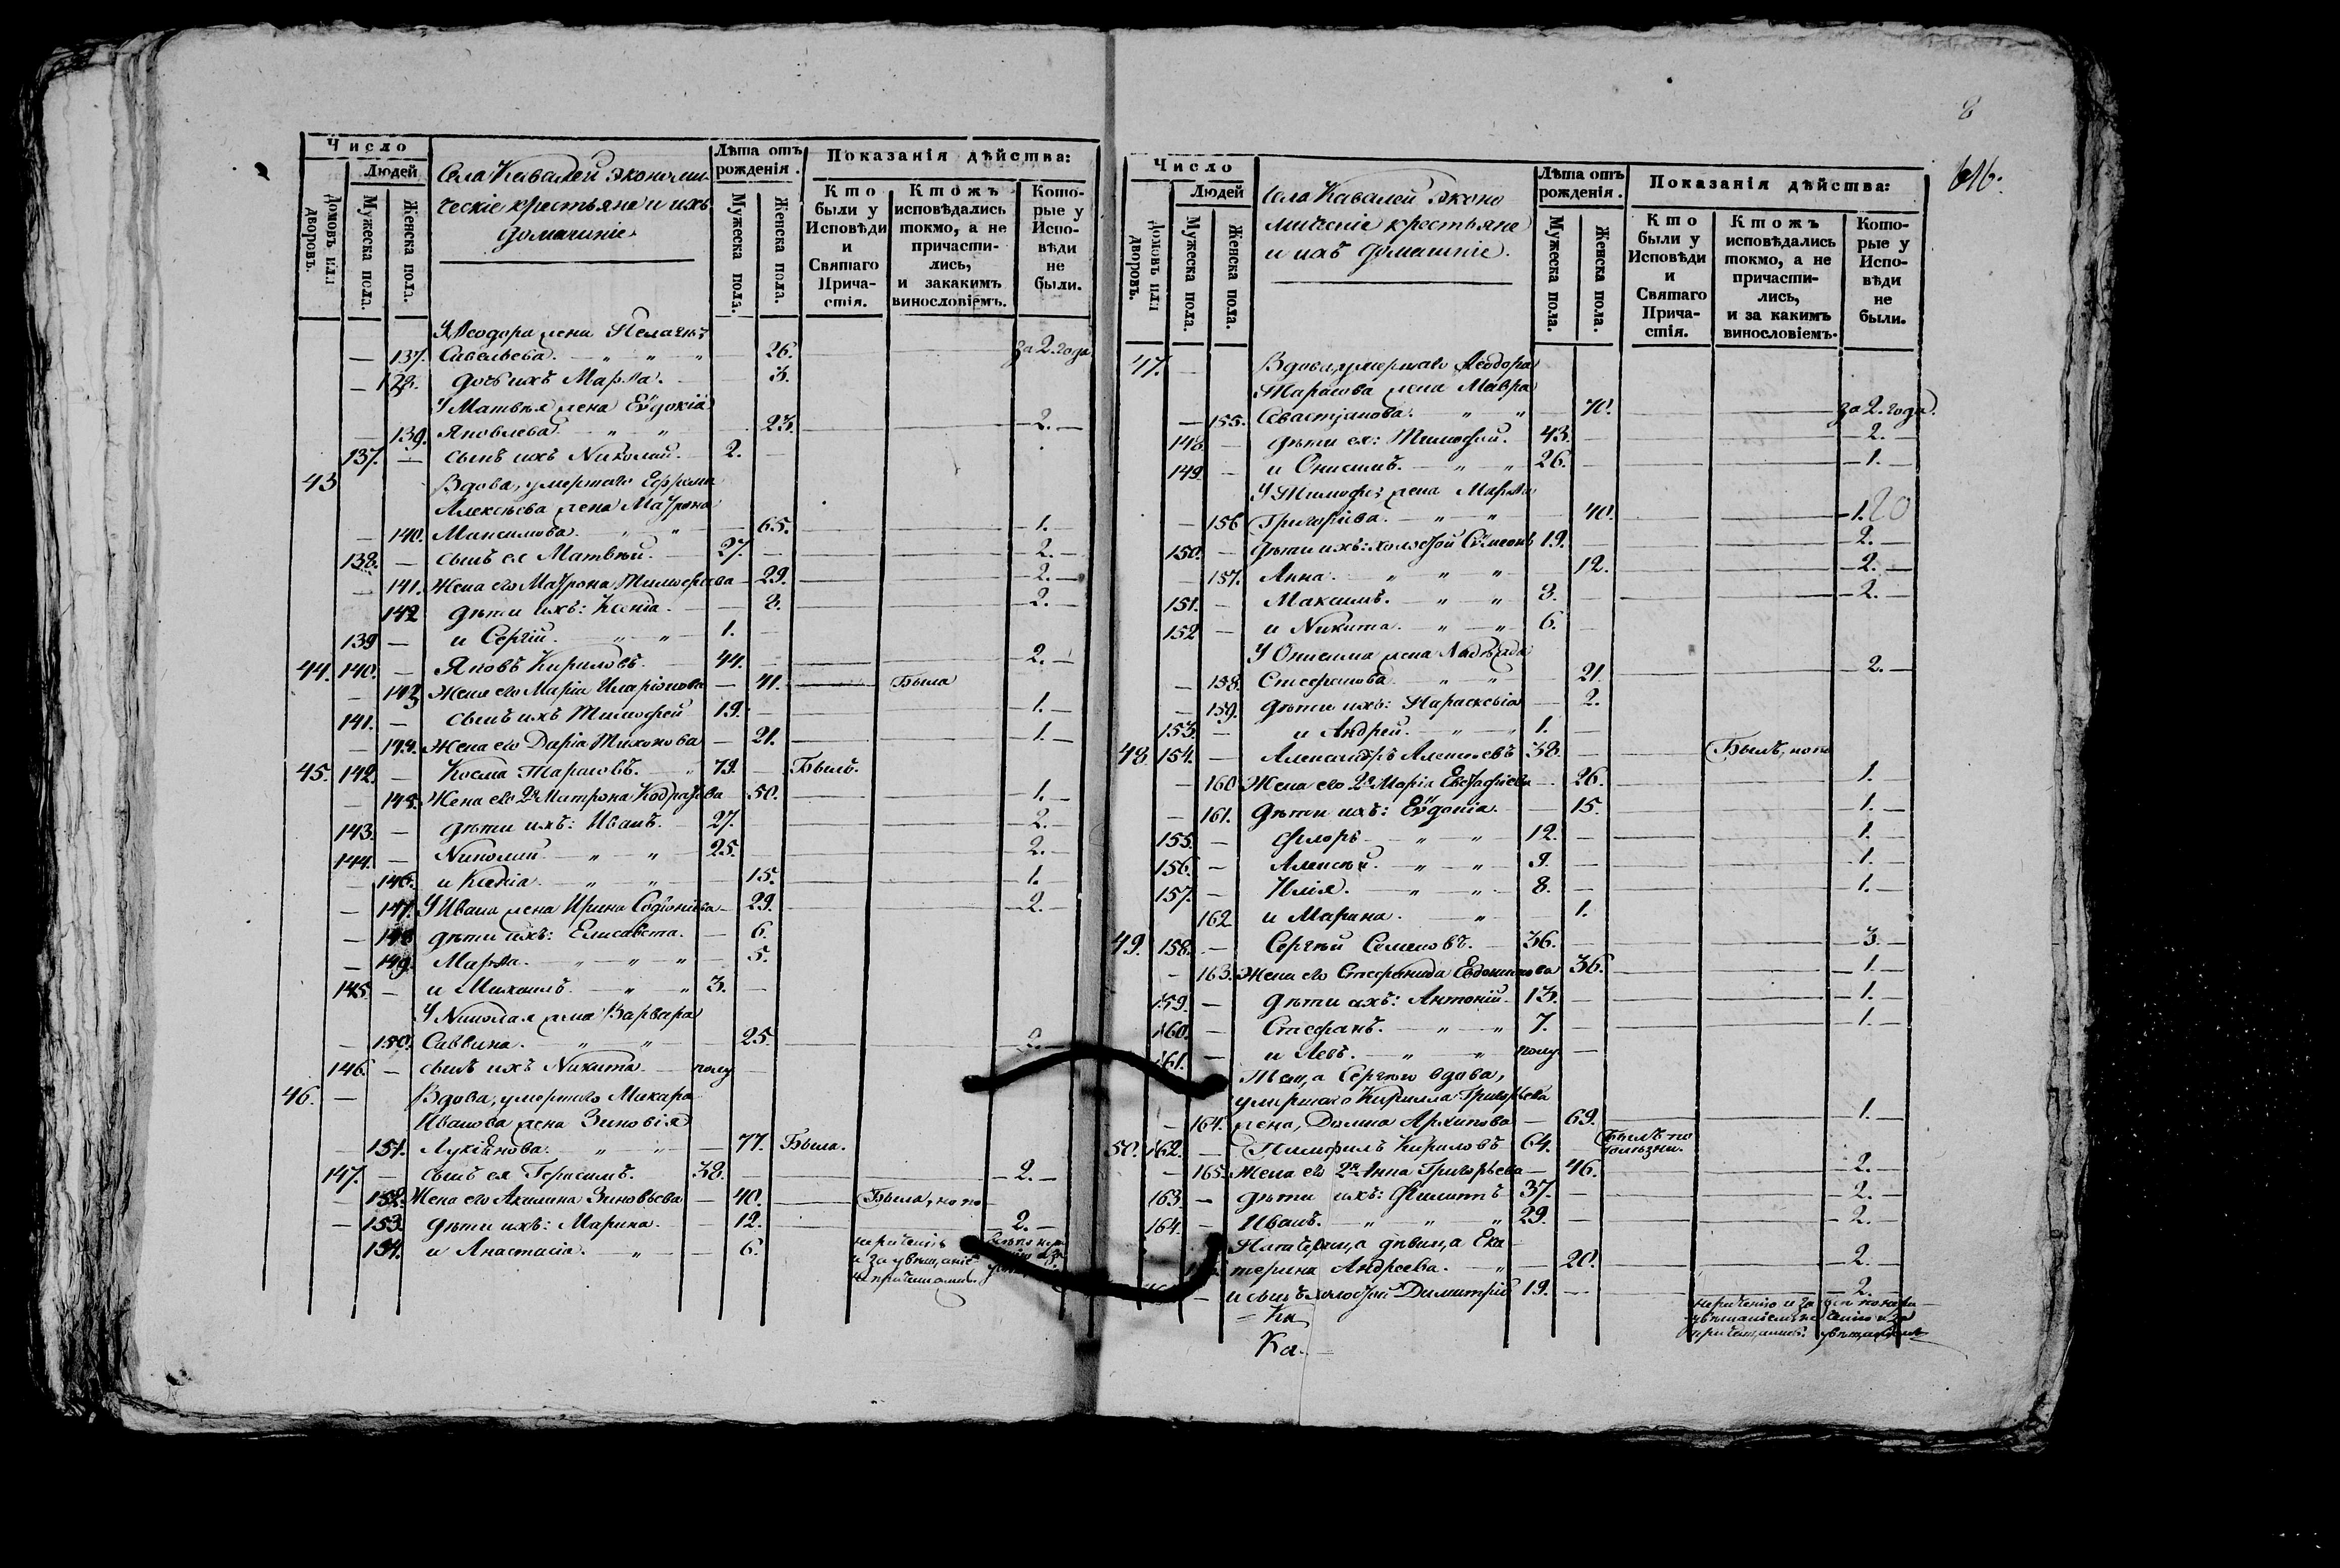 Число
Людей
Домовъ или дворовъ.
Мужеска пола.
Женска пола.
Села Кавалей экономи
ческіе крестьяне и ихъ
домашніе.
Лѣта отъ рожденія.
Мужеска пола.
Женска пола.
Показанія дѣйства:
Кто были у Исповѣди и Святаго Прича- стія.
Ктожъ исповѣдались токмо, а не причасти- лись, и закакимъ винословіемъ.
Кото- рые у Испо- вѣди не были.
У Ѳеодора жена Пелагея
— 137. Савельева. — 26. за 2. года
— 138. дочь ихъ Марѳа. — 3.
У Матвѣя жена Еѵдокія
— 139. Яковлева. — 23. — 2. —
137. — сынъ ихъ Николай. 2. —
43 Вдова, умершаго Ефрема
Алексѣева жена Маѵрона
— 140. Максимова. — 65. — 1. —
138. — сынъ ея Матвѣй. 27. — 2. —
— 141. Жена его Маѵрона Тимофеева — 29. — 2. —
142 дѣти ихъ: Ксенія. — 8. — 2. —
139 — и Сергій. 1. —
44. 140. — Яковъ Кириловъ. 44. — 2. —
— 143 Жена его Марія Иларіонова — 41. — Была
141. — сынъ ихъ Тимофей 19. — 1. —
— 144. Жена его Дарія Тихонова — 21. — 1. —
45. 142. — Косма Тарасовъ. 79. — Былъ.
— 145. Жена его 2я Матрона Кодратова 50. — 1. —
143. — дѣти ихъ: Иванъ. 27. — 2. —
144. — Николай. 25. — 2. —
— 146. и Ксенія. — 15. — 1. —
— 147. У Ивана жена Ирина Родіонова — 29. — 2. —
— 148 дѣти ихъ: Елисавета. — 6.
— 149. Марѳа. — 5.
145. — и Михаилъ. 3. —
У Николая жена Варвара
— 150. Саввина. — 25. — 2. —
146. — сынъ ихъ Никита. полу —
46. — Вдова, умершаго Макара
Иванова жена Зиновія
— 151. Лукіанова. — 77. Была.
147. — сынъ ея Герасимъ. 38. — 2. —
— 152. Жена его Акилина Зиновьева — 40. — Была, но по
— 153. дѣти ихъ: Марина. — 12. — 2. —
154. и Анастасія. — 6.
8
616.
Число
Людей
Домовъ или дворовъ.
Мужеска пола.
Женска пола.
Села Кавалей эконо
мическіе крестьяне
и ихъ домашніе.
Лѣта отъ рожденія.
Мужеска пола.
Женска пола.
Показанія дѣйства:
Кто были у Исповѣди и Святаго Прича- стія.
Ктожъ исповѣдались токмо, а не причасти- лись, и за какимъ винословіемъ.
Кото- рые у Испо- вѣди не были.
47. — Вдова, умершаго Ѳеодора
Тарасова жена Мавра
— 155. Севастіанова. — 70. — за 2. года.
148. — дѣти ея: Тимофей. 43. — 2. —
149 — и Онисимъ. 26. — 1. —
У Тимофея жена Марѳа
— 156 Григоріева. — 40. — 1. 20
150. — дѣти ихъ: холостой Сѵмеонъ 19. — 2. —
— 157. Анна. — 12. — 2. —
151. — Максимъ. 8. — 2. —
152 — и Никита. 6. —
У Онисима жена Надежда
— 158. Стефанова. — 21. — 2. —
— 159. дѣти ихъ: Параскевія — 2.
153. — и Андрей. 1. —
48 154. — Александръ Алексѣевъ 38. — Былъ, но по
— 160 Жена его 2я Марія Евстафіева — 26. — 1.
— 161. дѣти ихъ: Еѵдокія. — 15. — 1. —
155. — Флоръ 12. — 1. —
156. — Алексѣй. 9. — 1. —
157. — Илія. 8. — 1. —
162 и Марина. — 1.
49. 158. — Сергѣй Семеновъ. 36. — 3. —
— 163. Жена его Стефанида Евдокимова 36. — 1. —
159. — дѣти ихъ: Антоній. 13. — 1. —
160. — Стефанъ. 7. — 1. —
161. — и Левъ. полу —
Теща Сергѣю вдова,
умершаго Кирилла Григорьева
— 164. жена, Домна Архипова — 69. — 1. —
50. 162. — Памфилъ Кириловъ 64. — Былъ по болѣзни.
— 165. Жена его 2я Анна Григорьева — 46. — 2. —
163. — дѣти ихъ: Филиппъ 37. — 2. —
164. — Иванъ. 29. — 2. —
Падчерица дѣвица Ека
терина Андреева. — 20. — 2. —
— и сынъ холостой Димитрій 19. — 2. —
нераченію и за
Ка
Ка.